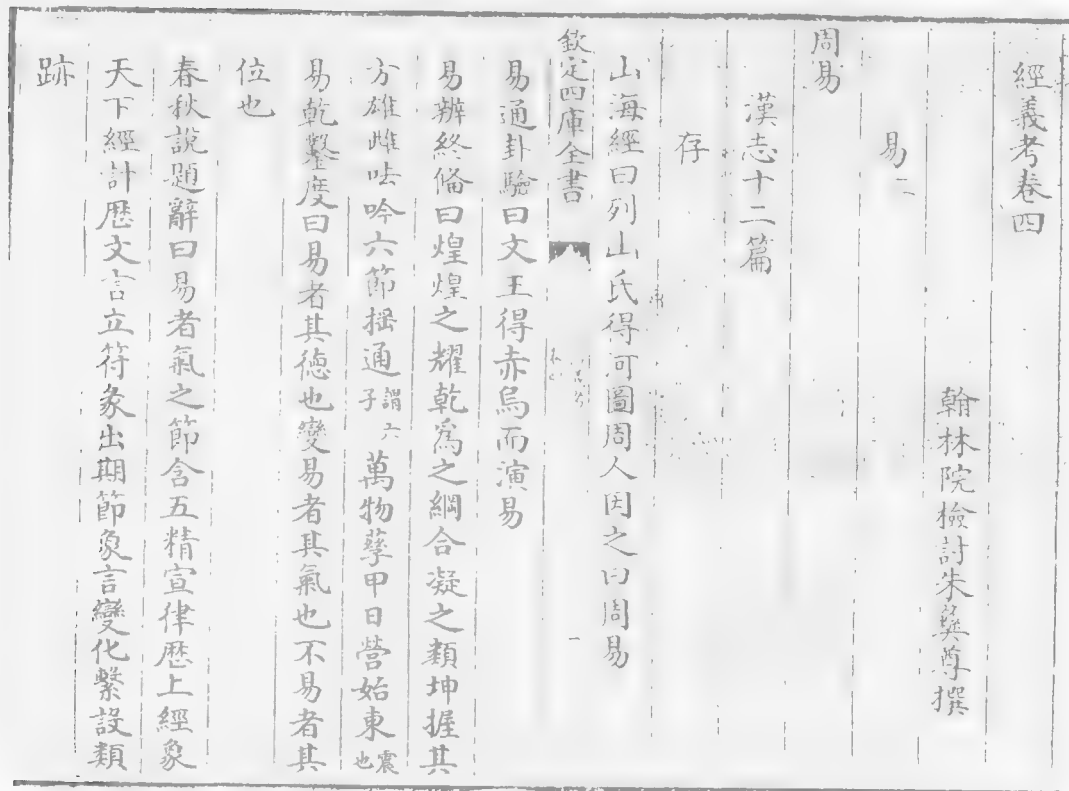 經義考卷四
翰林院檢討朱彝尊撰
易二
周易
漢志十二篇
存
山海經曰列山氏得河圖周人因之曰周易
欽定四庫全書
一
易通卦驗曰文王得赤烏而演易
易辨終備曰煌煌之耀乾為之綱合凝之類坤握其
方雄雌呿吟六節揺通謂六子萬物孳甲日營始東震也
易乾鑿度曰易者其徳也變易者其氣也不易者其
位也
春秋說題辭曰易者氣之節含五精宣律歴上經象
天下經計歴文言立符象出期節彖言變化繫設類
跡